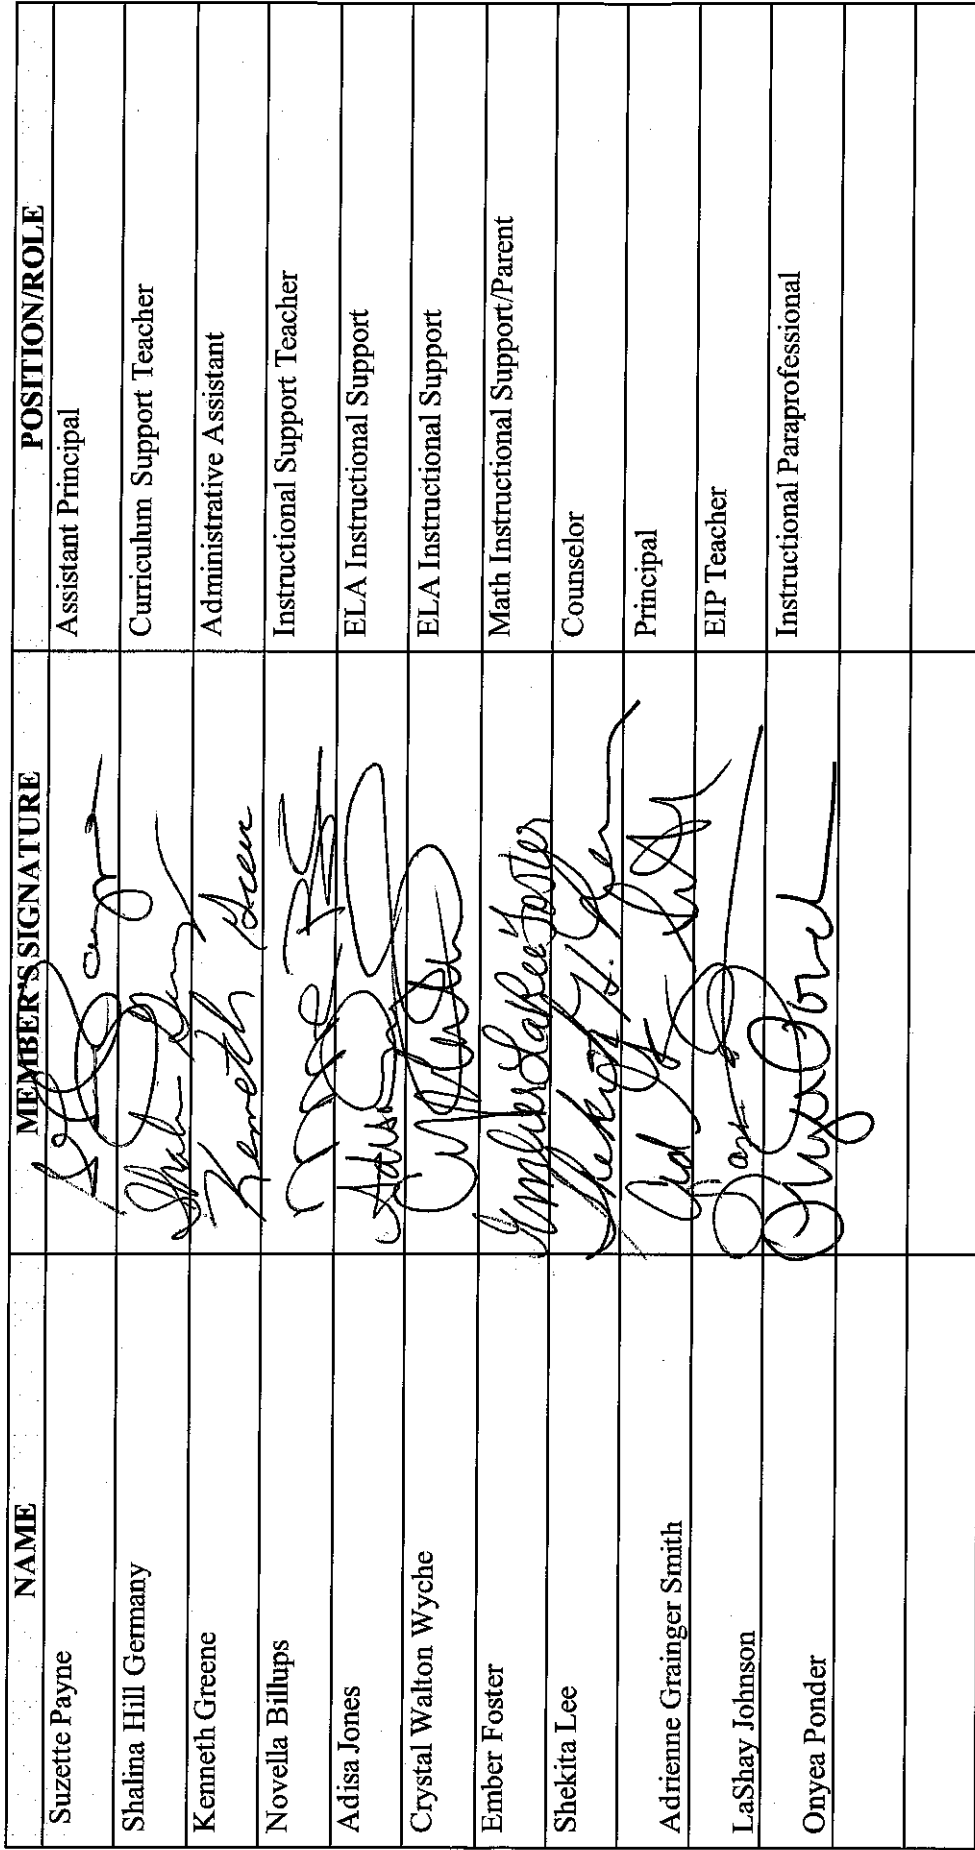 NAME MEMBER'S SIGNATURE POSITION/ROLE
Suzette Payne Assistant Principal
Shalina Hill Germany Curriculum Support Teacher
Kenneth Greene Kenneth Greene Administrative Assistant
Novella Billups Instructional Support Teacher
Adisa Jones ELA Instructional Support
Crystal Walton Wyche ELA Instructional Support
Ember Foster Ember LaRee Foster Math Instructional Support/Parent
Shekita Lee Counselor
Adrienne Grainger Smith Principal
LaShay Johnson EIP Teacher
Onyea Ponder Instructional Paraprofessional